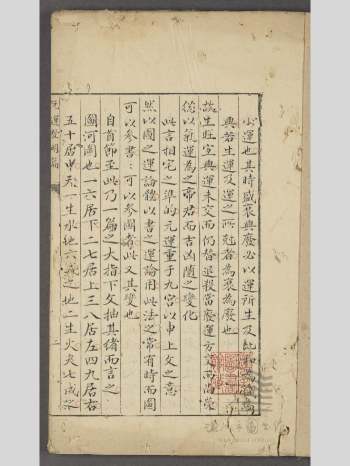 山運也其時盛衰興廢必以運所生及比和為
興若生運及運之所尅者為衰為廢也
故生旺宜興運未交而仍替退殺當廢運方
從以氣運為之帝君而吉凶隨之變化
此言相宅之準的元運重于九宮以申上文之意
然以圖之運論體以書之運論用此法之常有時而圖
可以參書書可以參圖者此又其變也
自首節至此乃一篇之大指下文抽其緒而言之
圖河圖也一六居下二七居上三八居左四九居右
五十居中天一生水地六成之地二生火天七成